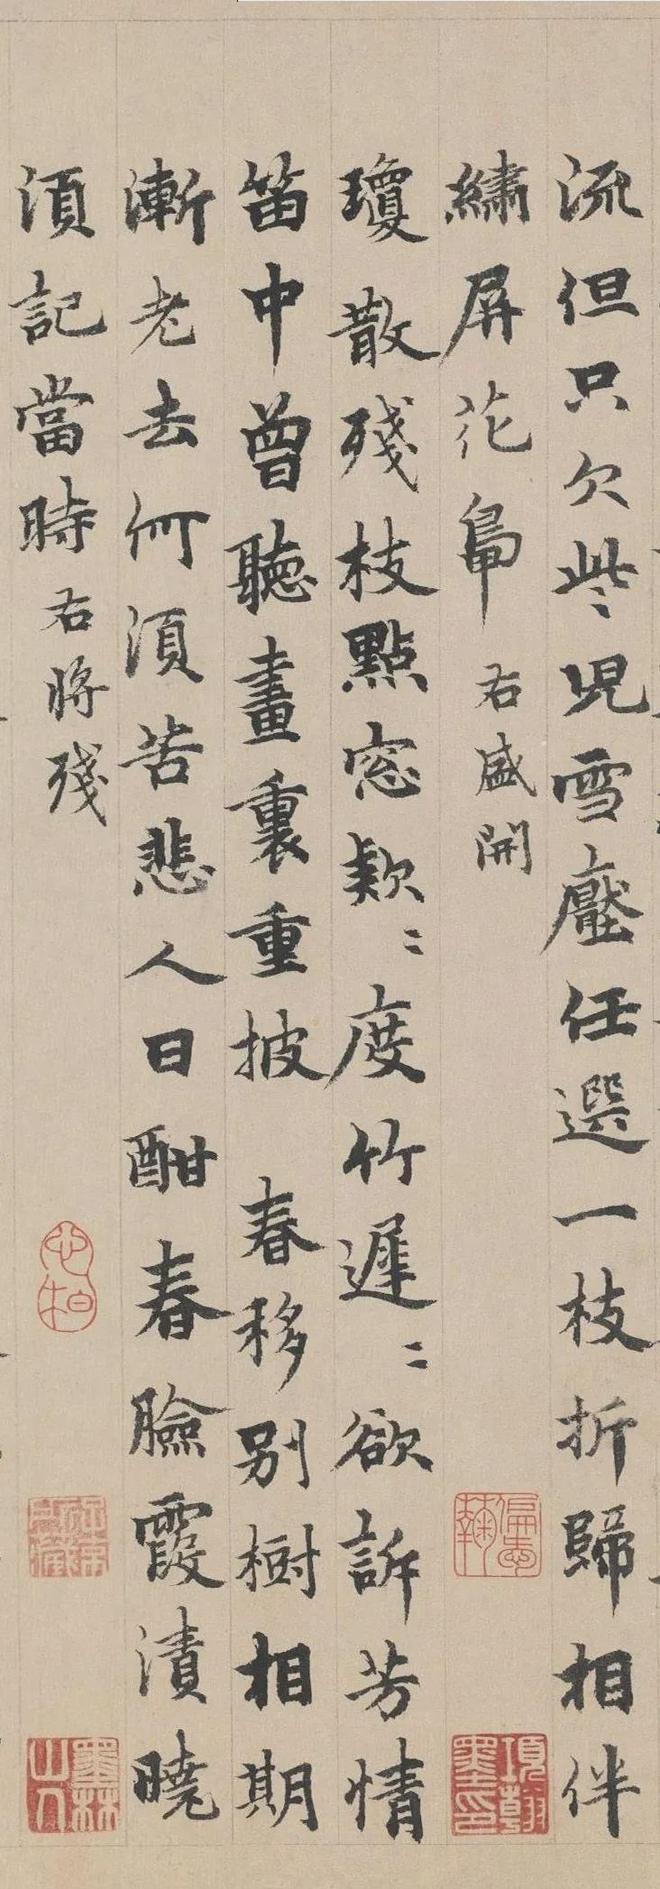 流但只欠些些兒雪壓任選一枝折歸相伴
繡屏花鳥 右盛開
瓊散殘枝點窓款〻度竹遲〻欲訴芳情
笛中曾聽畫裏重披 春移別樹相期
漸老去何須苦悲人日酣春臉霞漬曉
須記當時 右將殘
項墨林印
墨林山人